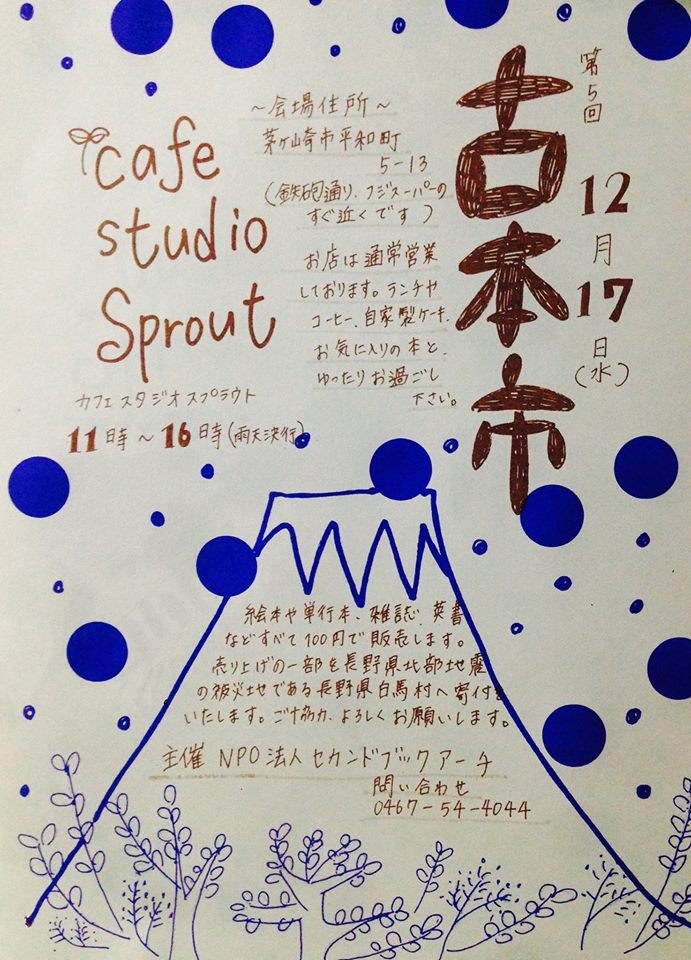 第5回
古本市
12月17日(水)
～会場住所～
茅ヶ崎市平和町
5-13
(鉄砲通り、フジスーパーの
すぐ近くです)
お店は通常営業
しております。ランチや
コーヒー、自家製ケーキ、
お気に入りの本と、
ゆったりお過ごし
下さい。
cafe
studio
Sprout
カフェスタジオスプラウト
11時～16時(雨天決行)
絵本や単行本、雑誌、英書
などすべて100円で販売します。
売り上げの一部を長野県北部地震
の被災地である長野県白馬村へ寄付を
いたします。ご協力、よろしくお願いします。
主催 NPO法人セカンドブックアーチ
問い合わせ
0467-54-4044